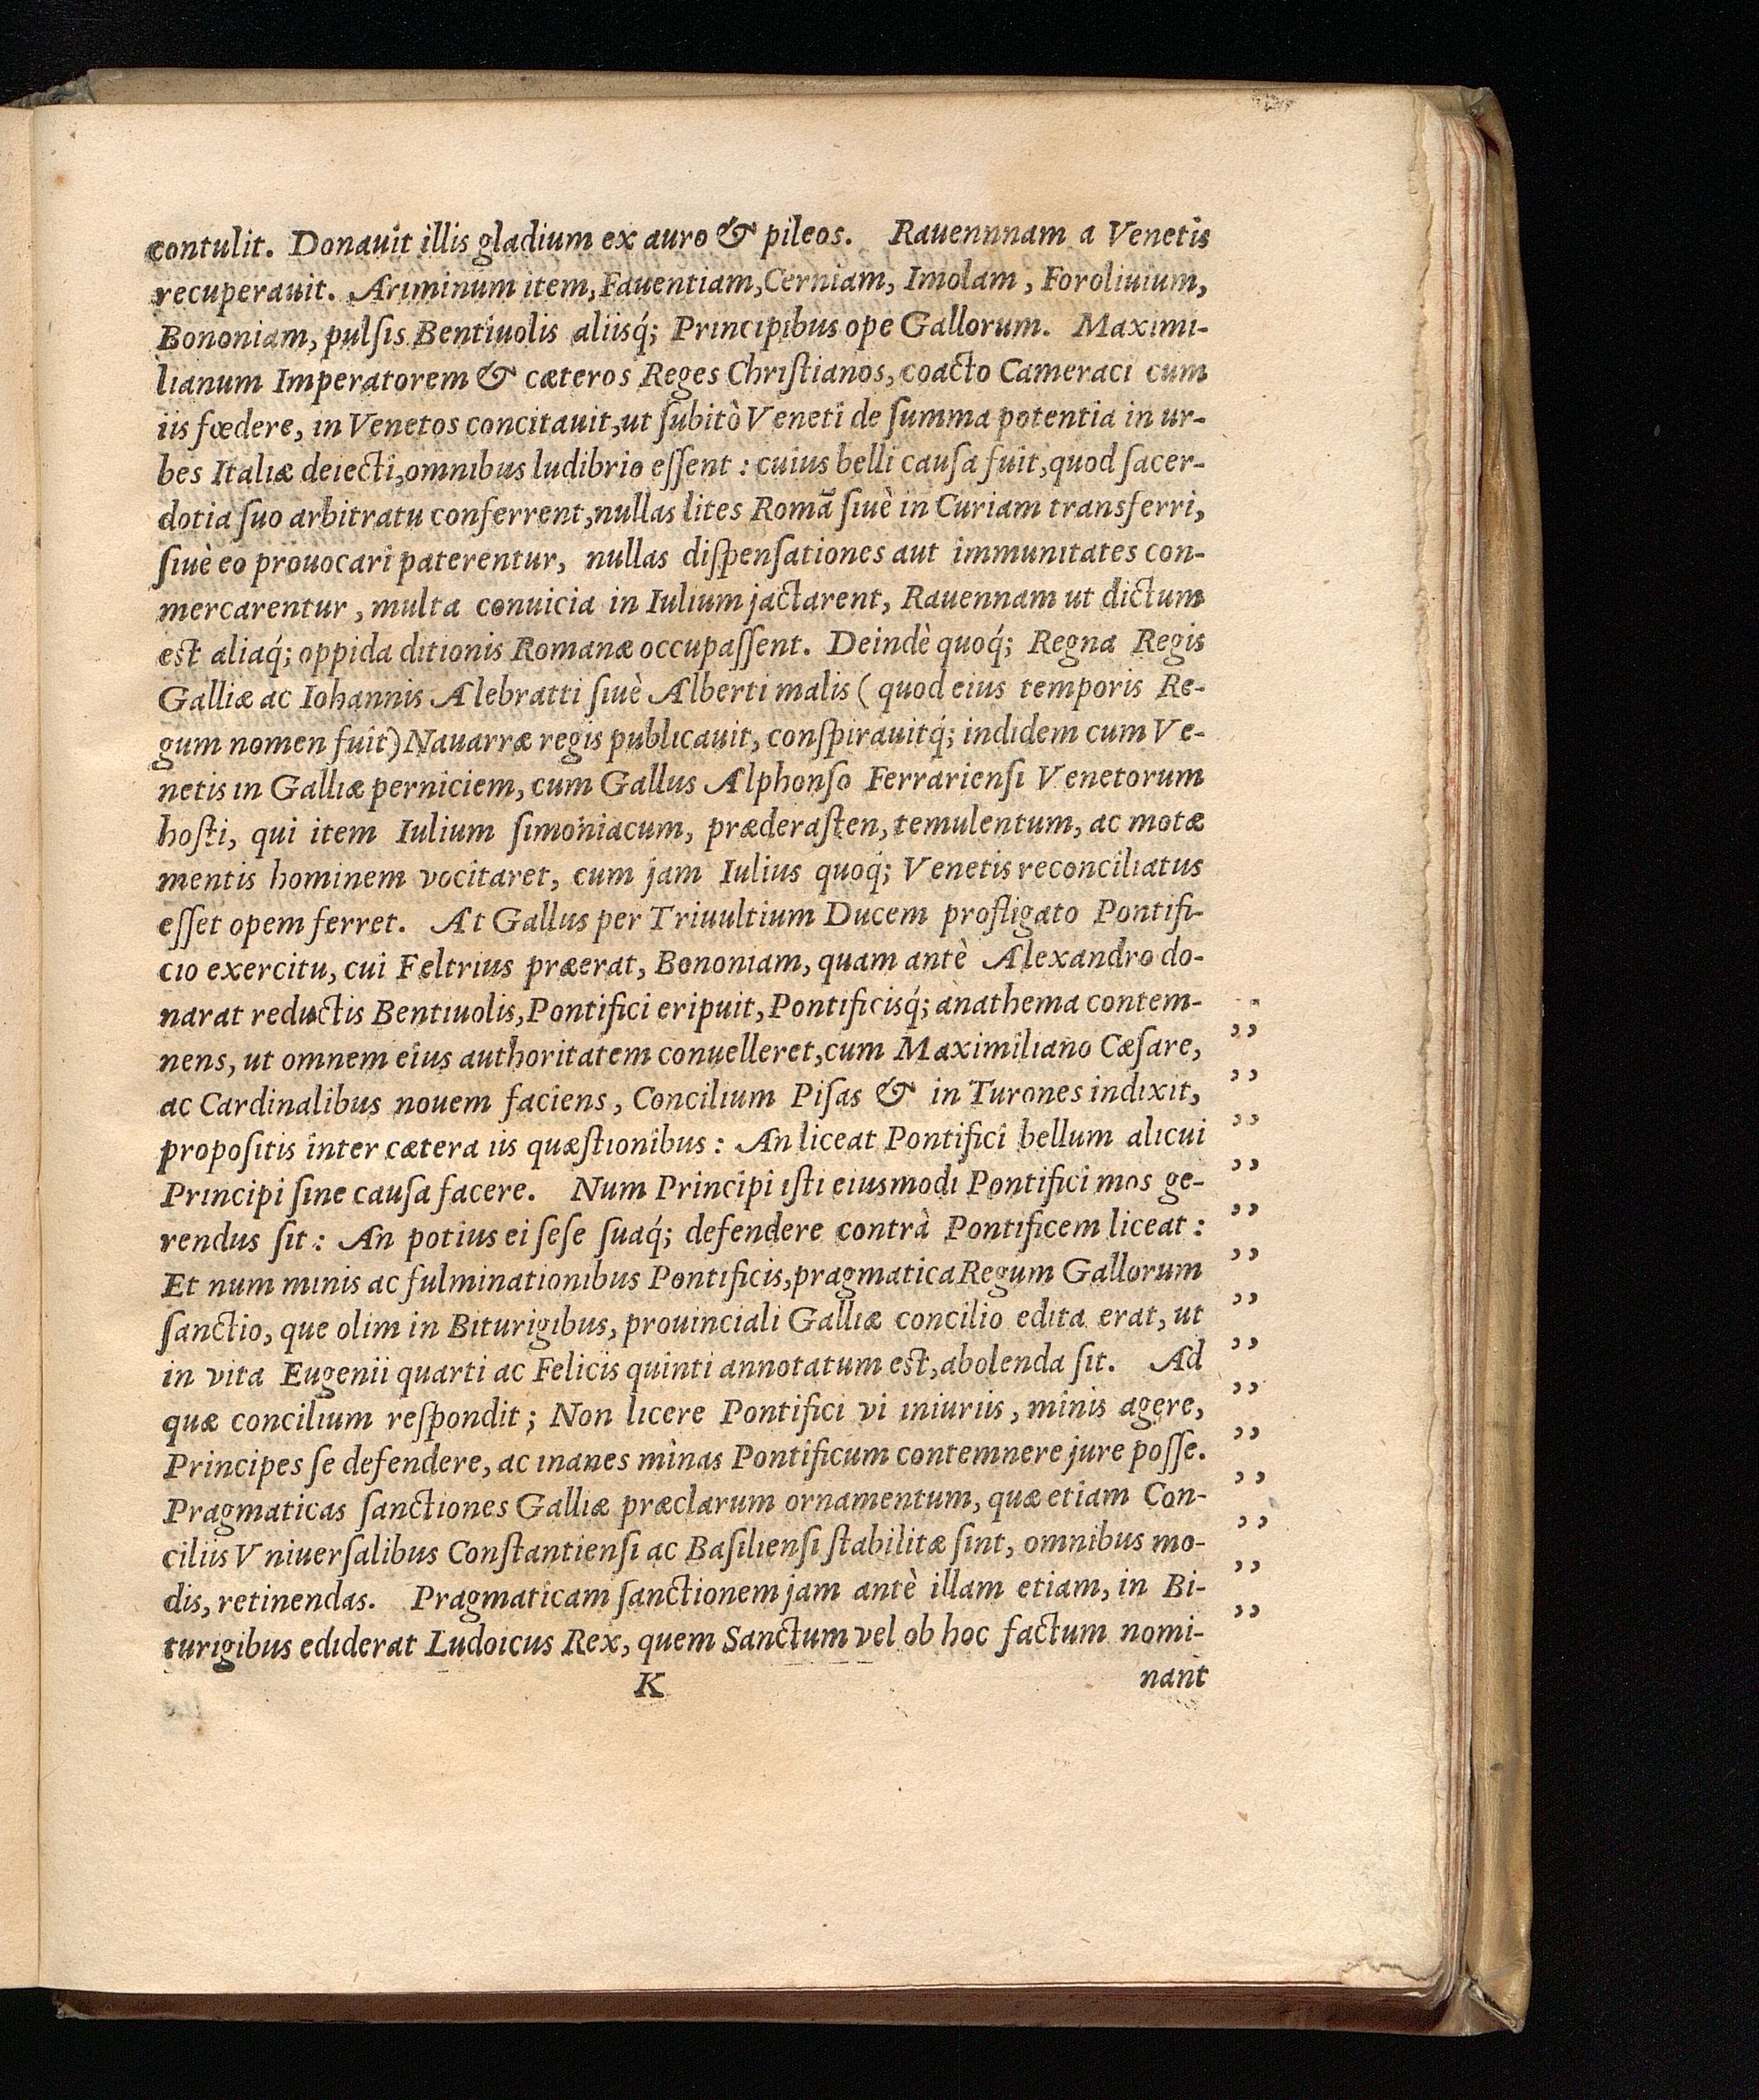 contulit. Donauit illis gladium ex auro & pileos. Rauennnam a Venetis
recuperauit. Ariminum item, Fauentiam, Cerniam, Imolam, Foroliuium,
Bononiam, pulſis Bentiuolis aliisq́; Principibus ope Gallorum. Maximi-
lianum Imperatorem & cæteros Reges Chriſtianos, coacto Cameraci cum
iis fœdere, in Venetos concitauit, ut ſubitò Veneti de ſumma potentia in ur-
bes Italiæ deiecti, omnibus ludibrio eſſent: cuius belli cauſa fuit, quod ſacer-
dotia ſuo arbitratu conferrent, nullas lites Romã ſiuè in Curiam transferri,
ſiuè eo prouocari paterentur, nullas diſpenſationes aut immunitates con-
mercarentur, multa conuicia in Iulium jactarent, Rauennam ut dictum
est aliaq́; oppida ditionis Romanæ occupaſſent. Deindè quoq́; Regna Regis
Galliæ ac Iohannis Alebratti ſiuè Alberti malis (quod eius temporis Re-
gum nomen fuit) Nauarræ regis publicauit, conſpirauitq́; indidem cum Ve-
netis in Galliæ perniciem, cum Gallus Alphonſo Ferrarienſi Venetorum
hoſti, qui item Iulium ſimoniacum, præderaſten, temulentum, ac motæ
mentis hominem vocitaret, cum jam Iulius quoq́; Venetis reconciliatus
eſſet opem ferret. At Gallus per Triuultium Ducem profligato Pontifi-
cio exercitu, cui Feltrius præerat, Bononiam, quam antè Alexandro do-
narat reductis Bentiuolis, Pontifici eripuit, Pontificisq́; anathema contem-
nens, ut omnem eius authoritatem conuelleret, cum Maximiliano Cæſare, ”
ac Cardinalibus nouem faciens, Concilium Piſas & in Turones indixit, ”
propoſitis inter cætera iis quæſtionibus: An liceat Pontifici bellum alicui ”
Principi ſine cauſa facere. Num Principi iſti eiusmodi Pontifici mos ge- ”
rendus ſit: An potius ei ſeſe ſuaq́; defendere contrà Pontificem liceat: ”
Et num minis ac fulminationibus Pontificis, pragmatica Regum Gallorum ”
ſanctio, que olim in Biturigibus, prouinciali Galliæ concilio edita erat, ut ”
in vita Eugenii quarti ac Felicis quinti annotatum est, abolenda ſit. Ad ”
quæ concilium reſpondit; Non licere Pontifici vi iniuriis, minis agere, ”
Principes ſe defendere, ac inanes minas Pontificum contemnere jure poſſe. ”
Pragmaticas ſanctiones Galliæ præclarum ornamentum, quæ etiam Con- ”
ciliis Vniuerſalibus Conſtantienſi ac Baſilienſi ſtabilitæ ſint, omnibus mo- ”
dis, retinendas. Pragmaticam ſanctionem jam antè illam etiam, in Bi- ”
turigibus ediderat Ludoicus Rex, quem Sanctum vel ob hoc factum nomi- ”
K nant